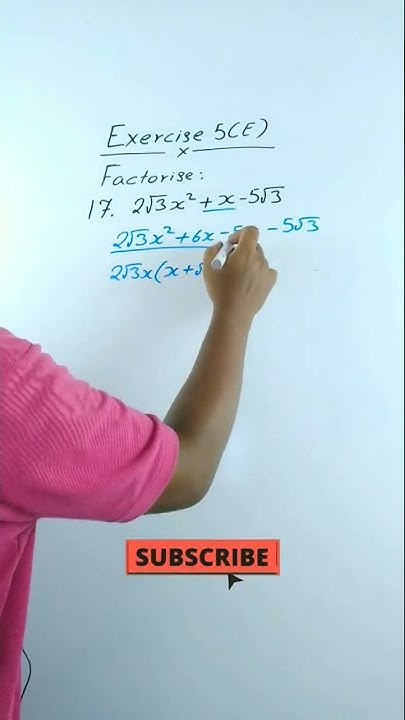 Exercise 5(E)
x
Factorise:
17. 2√3x² + x - 5√3
2√3x² + 6x - 5 - 5√3
2√3x(x + √
SUBSCRIBE